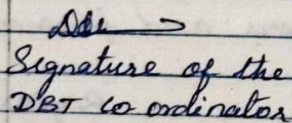 Signature of the
DBT co ordinator